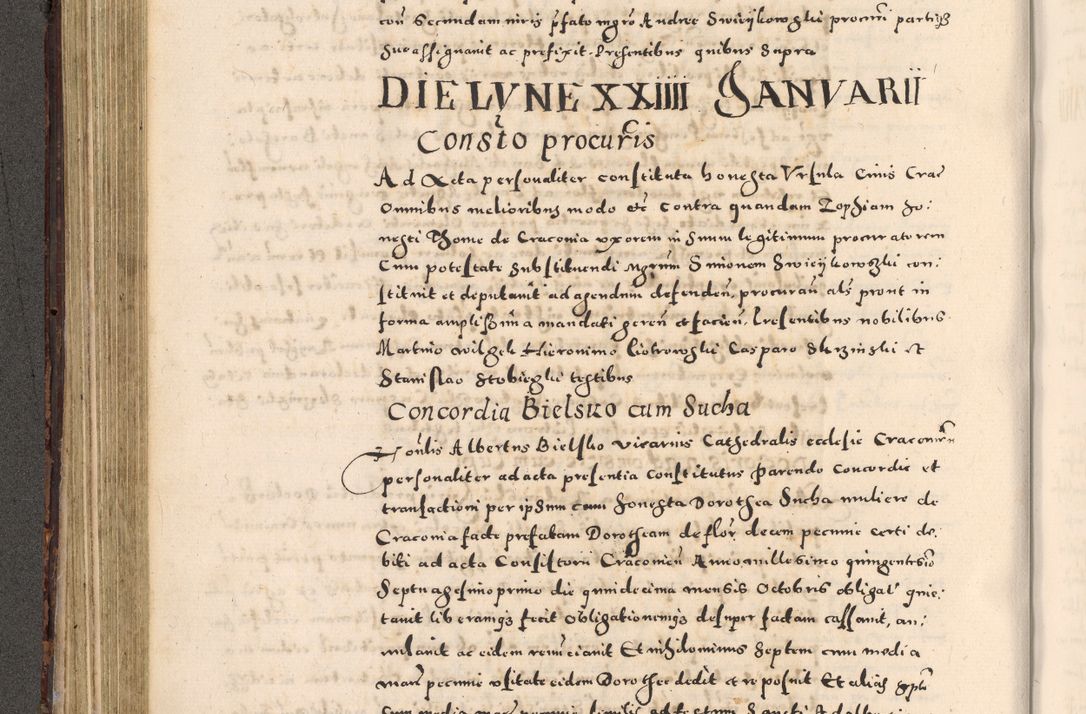 coń Secundam iuris p̃fato mgro Andree Swieÿkowskii procurĩ partiẞ
suo assignauit ac prefixit. Presentibus quibus supra
DIE LVNE XXIIII JANVARII
Consto procuris
Ad Acta personaliter constituta honesta Vrsula Ciuis Crac
Omnibus melioribus modo etc Contra quandam Zophiam ho:
nesti Thome de Craconia vxorem in suum legitimum procuratorem
Cum potestate substituendi mgrum Simonem Swieÿkowskii con:
stituit et deputauit ad agendum defendeñ, procurañ als prout in
forma amplissima mandati gereñ et facieñ. Presentibus nobilibus
Martino Hieronimo Piotrowskii Casparo Skrzinskii et
Stanislao Stobieskii testibus
Concordia Bielsko cum Sucha
Honlis Albertus Bielsko vicarius Cathedralis ecclesie Craconeñ
personaliter ad acta presentia Constitutus Parendo Concordie et
transactioni per ipsum cum honesta Dorothea Sucha muliere de
Craconia facte prefatam Dorotheam de flor̃ decem pecunie certi de:
biti ad acta Consistorii Craconieñ Anno millesimo quingentesio
Septuagesimo primo die quindecima mensis Octobris obligat quie:
tauit liberamqz fecit Obligationemqz desuper factam cassauit, an:
nulauit ac eidem renunciauit Et nihilominus Septem cum media
marc̃ pecunie vsitate eidem Dorothee dedit et reposuit Et alias
Cum media marc̃ pecunie similis ad festum Sancti Adalberti